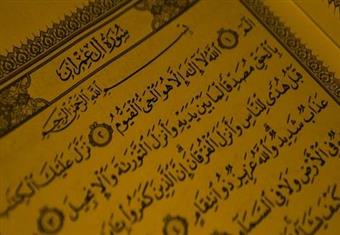 سُورَةُ آلِ عِمْرَانَ
بِسْمِ اللَّهِ الرَّحْمَٰنِ الرَّحِيمِ
الٓمٓ ١ ٱللَّهُ لَآ إِلَٰهَ إِلَّا هُوَ ٱلْحَىُّ ٱلْقَيُّومُ ٢ نَزَّلَ عَلَيْكَ ٱلْكِتَٰبَ
بِٱلْحَقِّ مُصَدِّقًا لِّمَا بَيْنَ يَدَيْهِ وَأَنزَلَ ٱلتَّوْرَىٰةَ وَٱلْإِنجِيلَ ٣
قَبْلُ هُدًى لِّلنَّاسِ وَأَنزَلَ ٱلْفُرْقَانَ إِنَّ ٱلَّذِينَ كَفَرُوا۟
عَذَابٌ شَدِيدٌ وَٱللَّهُ عَزِيزٌ ذُو ٱنتِقَامٍ ٤
فِى ٱلْأَرْضِ وَلَا فِى ٱلسَّمَآءِ
كَيْفَ